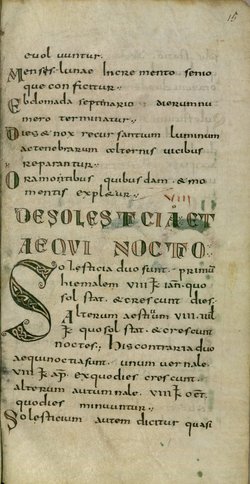 15
euoluuntur.
Menses. lunae incremento senio
que conficitur.
Ebdomada septinario dierum nu
mero terminatur.
Dies & nox recursantium luminum
ac tenebrarum alternis uicibus
reparantur.
Ora motibus quibusdam. & mo
mentis expletur.
VIII
DE SOLESTICIA ET
AEQUINOCTIO
Solesticia duo sunt. primum
hiemalem VIII kł ian. quo
sol stat. & crescunt dies.
Alterum aestiuum VIII. iul
kł quo sol stat. & crescunt
noctes; His contraria duo
aequinoctia sunt. unum uernale.
VIII kł ap. ex quo dies crescunt.
alterum autumnale. VIII kł oct.
quo dies minuuntur.
Solesticium autem dicitur quasi